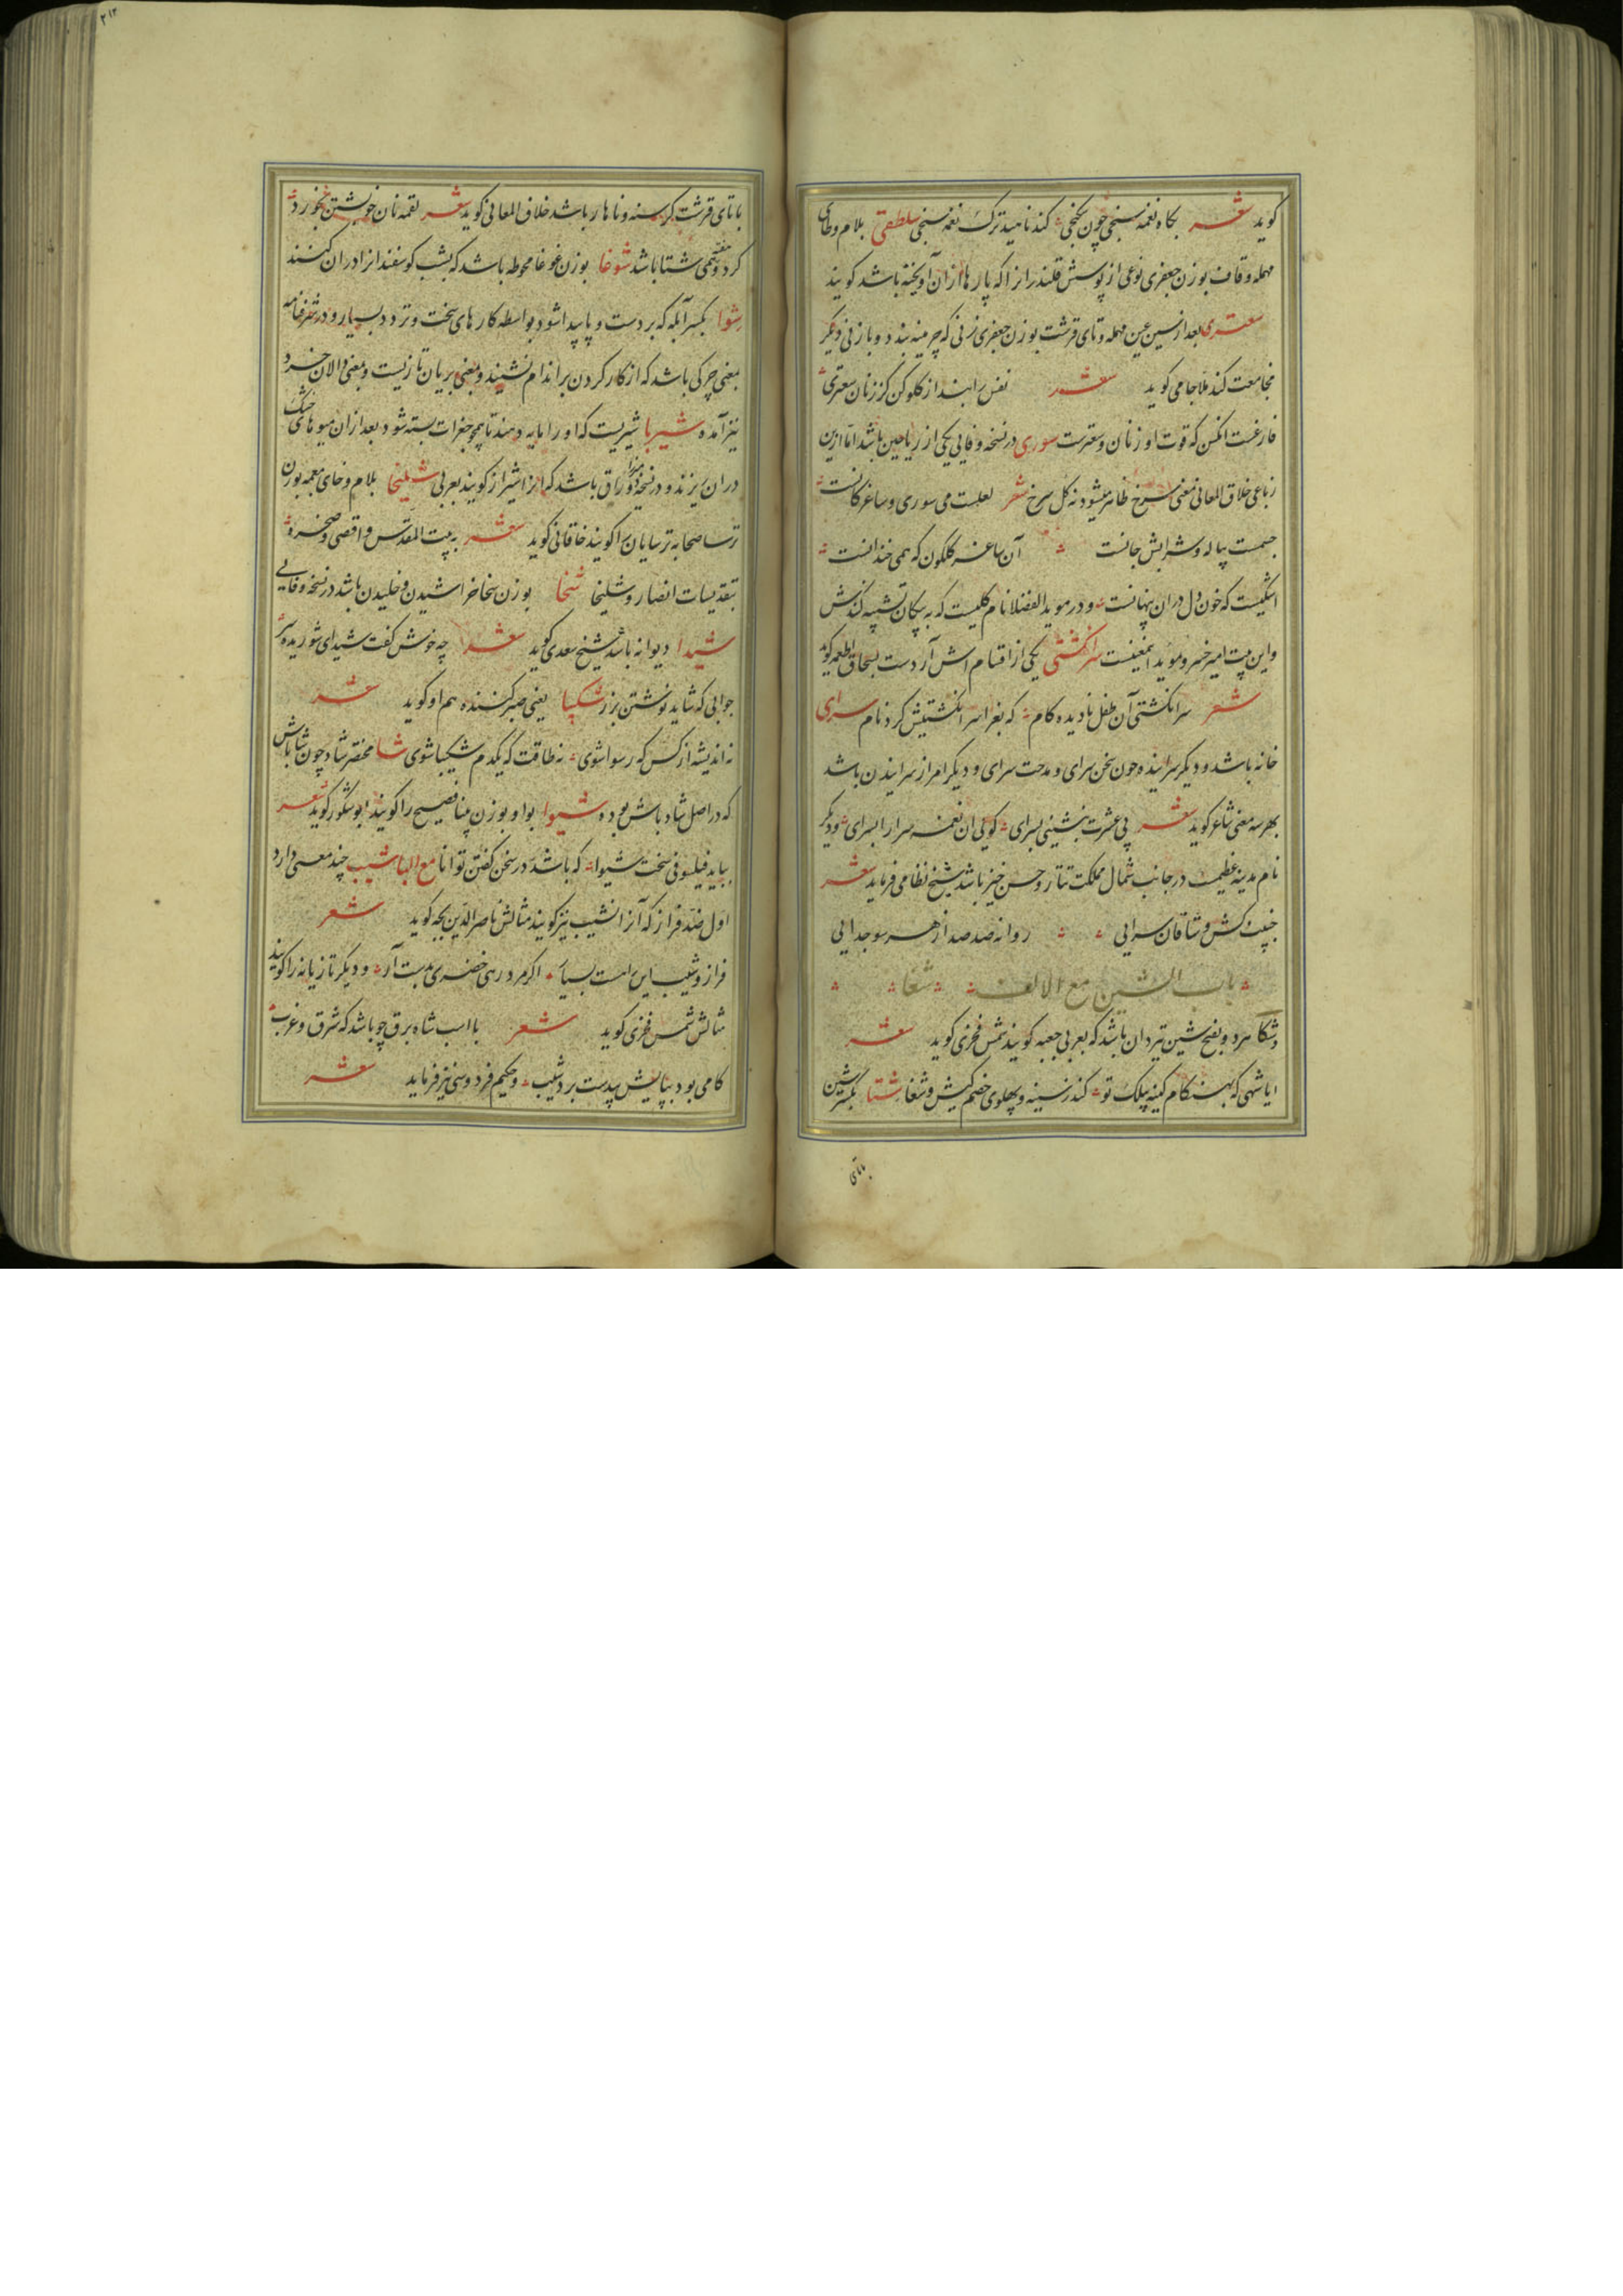 کوید شعر بکاه نغمه سنجی چون بخنجی کند ناهید ترک نغمه سنجی سلطقی بلام وطای
مهمله وقاف بوزن جعفری نوعی از پوشش قلندران که پارها ازان آویخته باشد کویند
سعتری بعد از سین عین مهمله وتای قرشت بوزن جعفری زنی که چرمینه بندد وبا زنی دیکر
مجامعت کند ملا جامی کوید شعر نفس را بند از کلو کن کز زنان سعتری
فارغست انکس که قوت او ز نان وسعترست سوری در نسخه وفایی یکی از ریاحین باشد اما ازین
رباعی خلاق المعانی معنی سرخ ظاهر میشود نه کل سرخ شعر لعلست می سوری وساغر کانست
جسمست پیاله وشرابش جانست آن ساغر کلکون که بمی خندانست
اشکیست که خون دل دران پنهانست ودر موید الفضلا نام کلیست که به پیکان تشبیه کنندش
واین بیت امیر خسرو موید اینمعنیست سرانکشتی یکی از اقسام اش آردست بسحاق اطعمه کوید
شعر سرانکشتی آن طفل نادیده کام که بغرا سرانکشتیش کرد نام سرای
خانه باشد ودیکر سراینده چون سخن سرای ومدحت سرای ودیکر امر از سراییدن باشد
بهر سه معنی شاعر کوید شعر پی عشرت بنشینی بسرای کویی ان نغمه سرا را بسرای ودیکر
نام مدینه عظیمست در جانب شمال مملکت تتار وحسن خیز باشد شیخ نظامی فرماید شعر
جنیبت کش وشاقان سرایی روانه صد صد از هر سو جدایی
باب الشین مع الالف شغا
وشکا هردو بفتح شین تیردان باشد که بعربی جعبه کویند شمس فخری کوید شعر
ایا شهی که بهنکام کینه پیلک تو کند ز سینه وپهلوی خصم کیش وشغا شتا بکسر شین
باتای
۳۱۳
باتای قرشت کرسنه وناهار باشد خلاق المعانی کوید شعر لقمه نان خویشتن نخورد
کرد وقتی همی شتا باشد شوغا بوزن غوغا محوطه باشد که بشب کوسفندانرا دران کنند
شوا بکسر آبله که بر دست وپا پیدا شود بواسطه کارهای سخت وتردد بسیار ودر شرفنامه
بمعنی چرکی باشد که از کار کردن بر اندام نشیند وبمعنی بریان تازیست وبمعنی والان خرد
نیز آمده شیربا شیریست که اورا مایه دهند تا همچو جغرات بسته شود بعد ازان میوهای خشک
دران ریزند ودر نسخه میرزا وراق باشد که انرا شیراز کویند بعربی شلیخا بلام وخای معجمه بوزن
ترسا صحابه ترسایان را کویند خاقانی کوید شعر به بیت المقدس واقصی وصخره
بتقدیسات انصار وشلیخا شخا بوزن سخا خراشیدن وخلیدن باشد در نسخه وفایی
شیدا دیوانه باشد شیخ سعدی کوید شعر چه خوش کفت شیدای شوریده سر
جوابی که شاید نوشتن بزر شکیبا یعنی صبر کننده هم او کوید شعر
نه اندیشه از کس که رسوا شوی نه طاقت که یکدم شکیبا شوی شا مختصر شاد چون شاباش
که در اصل شاد باش بوده شیوا بواو بوزن مینا فصیح را کویند ابو شکور کوید شعر
بباید فیلسوفی سخت شیوا که باشد در سخن کفتن توانا مع البا شیب چند معنی دارد
اول ضد فراز که آنرا نشیب نیز کویند مثالش ناصر الدین بجه کوید شعر
فراز وشیب این راهست بسیار اکر مرد رهی خضری بدست آر ودیکر تازیانه را کویند
مثالش شمس فخری کوید شعر با اسب شاه برق چو باشد که شرق وغرب
کامی بود بپایش پیدست برد شیب وحکیم فردوسی نیز فرماید شعر